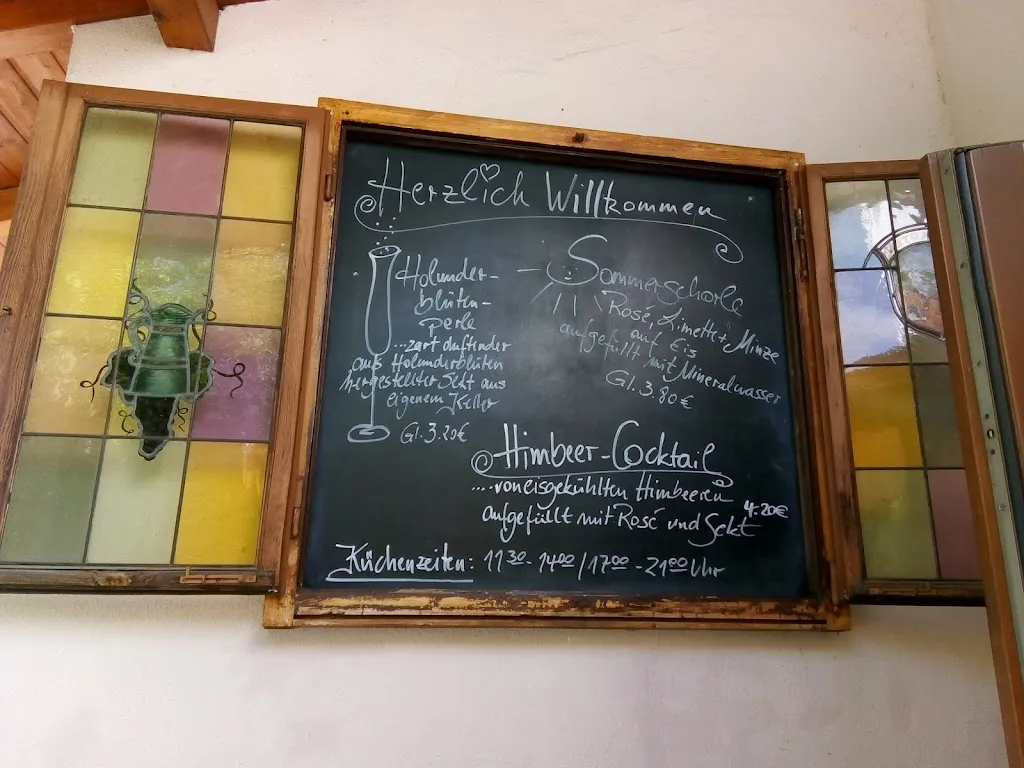 Herzlich Willkommen
Holunder-
blüten-
perle
...zart duftender
aus Holunderblüten
hergestellter Sekt aus
eigenem Keller
Gl. 3.20€
Sommerschorle
Rosé, Limette + Minze
auf Eis
aufgefüllt mit Mineralwasser
Gl. 3.80€
Himbeer-Cocktail
....von eisgekühlten Himbeeren
aufgefüllt mit Rosé und Sekt
4.20€
Küchenzeiten: 11 30 - 14 00 / 17 00 - 21 00 Uhr